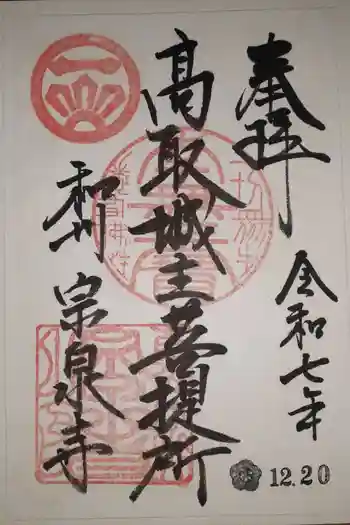 奉拝
令和七年
12.20
高取城主菩提所
和州 宗泉寺